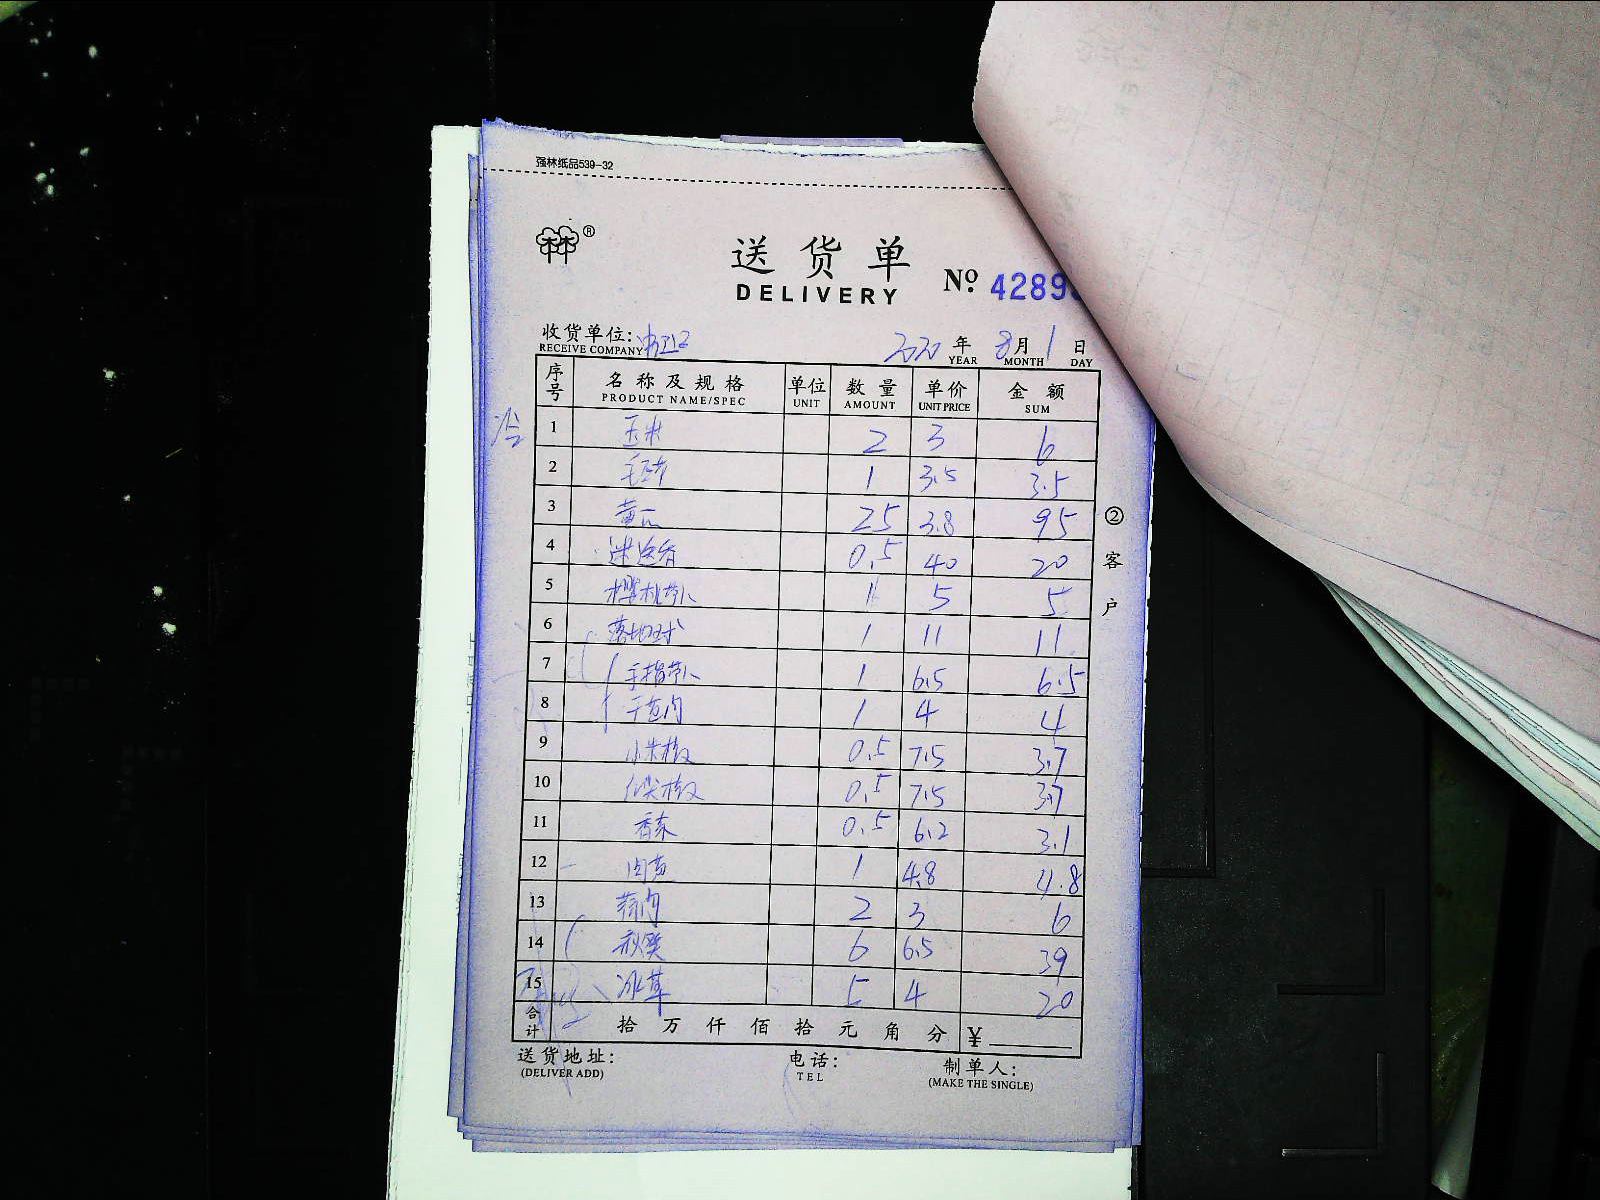 强林纸品539-32
林林®
送货单
DELIVERY
No. 4289
收货单位:
RECEIVE COMPANY
2020年8月1日
YEAR MONTH DAY
序号 名称及规格 单位 数量 单价 金额
PRODUCT NAME/SPEC UNIT AMOUNT UNIT PRICE SUM
1 玉米 2 3 6
2 毛 1 3.5 3.5
3 黄瓜 25 3.8 95
4 迷迭香 0.5 40 20
5 樱桃 1 5 5
6 落地球 1 11 11
7 手指 1 6.5 6.5
8 1 4 4
9 小米椒 0.5 7.5 3.7
10 尖椒 0.5 7.5 3.7
11 香菜 0.5 6.2 3.1
12 1 4.8 4.8
13 2 3 6
14 秋葵 6 6.5 39
15 冰草 5 4 20
合计 拾万仟佰拾元角分 ¥
②客户
送货地址: 电话: 制单人:
(DELIVER ADD) TEL (MAKE THE SINGLE)